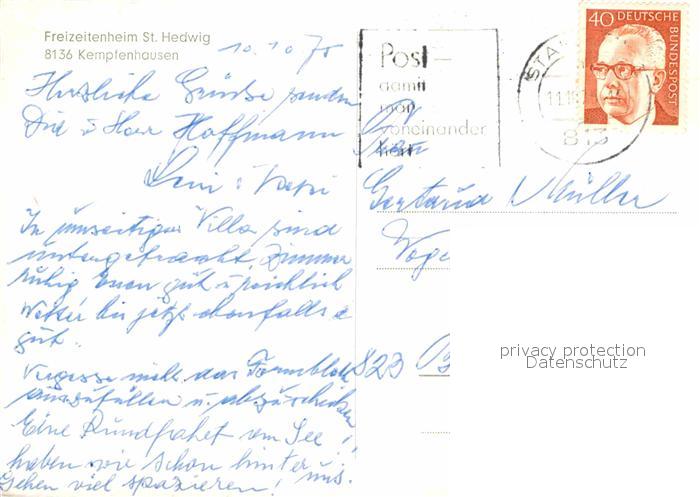 Freizeitenheim St. Hedwig
8136 Kempfenhausen
10.10.75
Herzliche Grüsse senden
Dir u. Herr Hoffmann
In Villa sind
untergebracht, Zimmer
ruhig Essen gut u. reichlich
Wetter bis jetzt ebenfalls
gut.
Vergesse nicht das Formblatt
auszufüllen u. abzuschicken
Eine Rundfahrt am See
haben wir schon hinter uns.
Gehen viel spazieren!
Post –
damit
man
voneinander
hört
STA
11.10
813
40 DEUTSCHE
BUNDESPOST
Frau
Gertrud Müller
Voge
823
privacy protection
Datenschutz